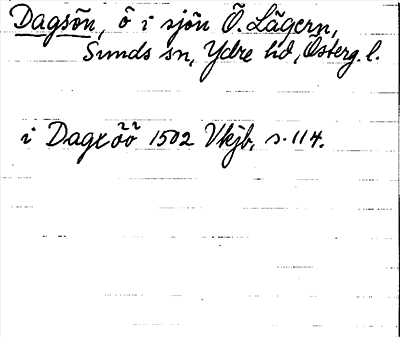 Dagsön, ö i sjön Ö. Lägern,
Sunds sn, Ydre hd, Österg. l.
i Dagxöö 1502 Vkjb, s. 114.